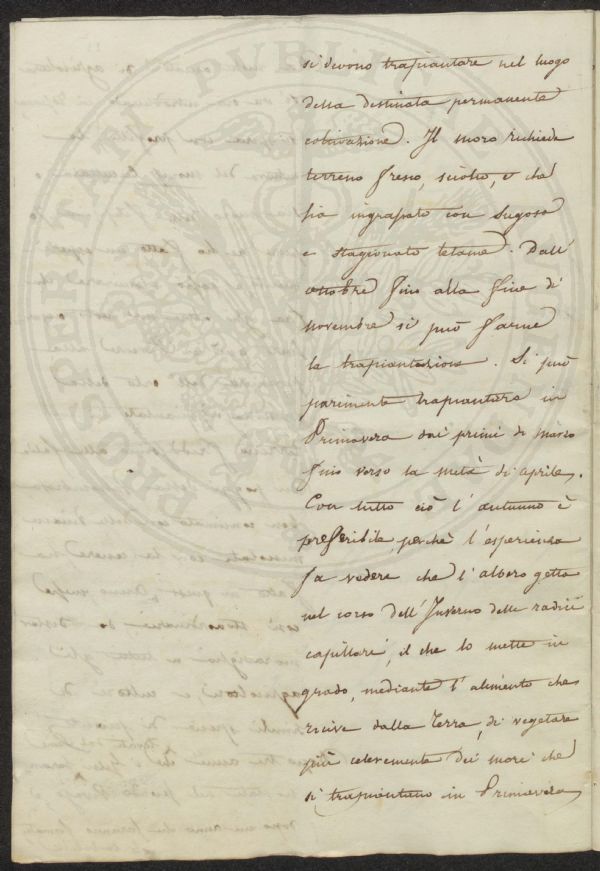 si devono trapiantare nel luogo
della destinata permanente
coltivazione. Il moro richiede
terreno fresco, sciolto, e che
sia ingrassato con sugoso
e stagionato letame. Dall'
ottobre fino alla fine di
novembre si può farne
la trapiantazione. Si può
parimente trapiantare in
Primavera dai primi di marzo
fino verso la metà di aprile.
Con tutto ciò l'autunno è
preferibile, perchè l'esperienza
fa vedere che l'albero getta
nel corso dell'Inverno delle radici
capillari, il che lo mette in
grado, mediante l'alimento che
riceve dalla Terra, di vegetare
più celeremente dei mori che
si trapiantano in Primavera